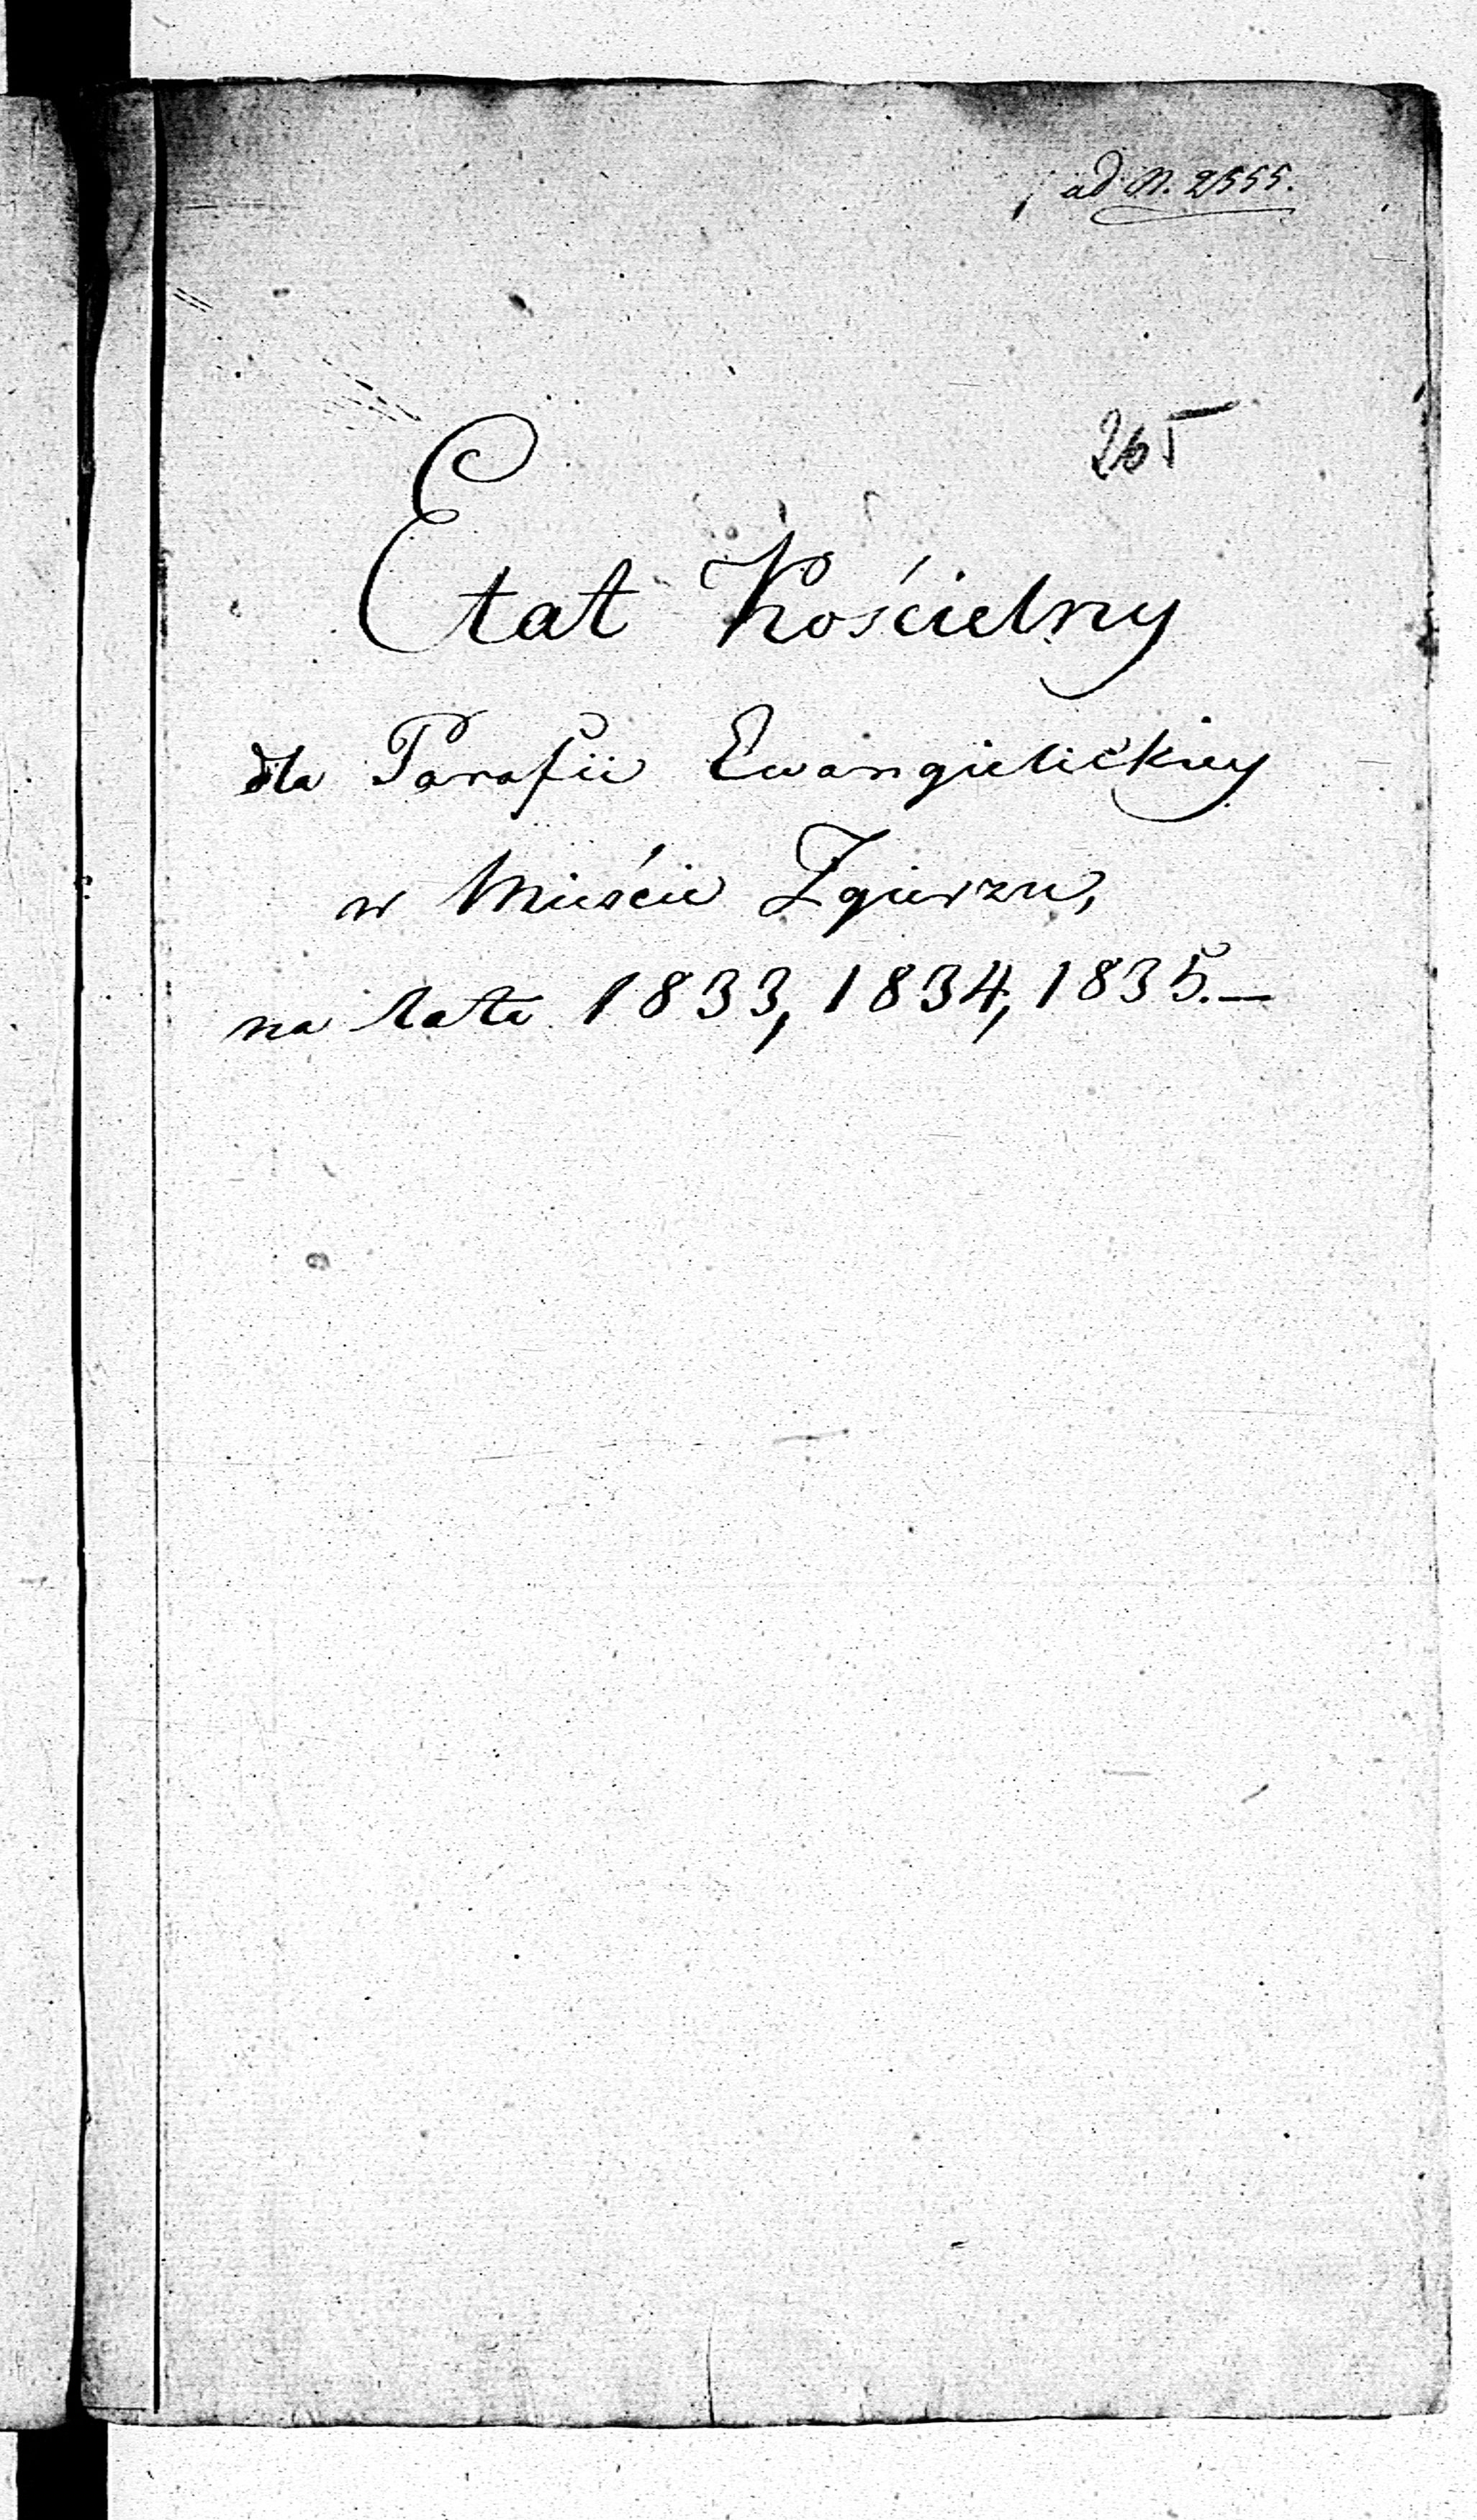 ad N. 2555.
265
Etat Kościelny
dla Parafii Ewangielickiey
w Mieście Zgierzu,
na lata 1833, 1834, 1835.—